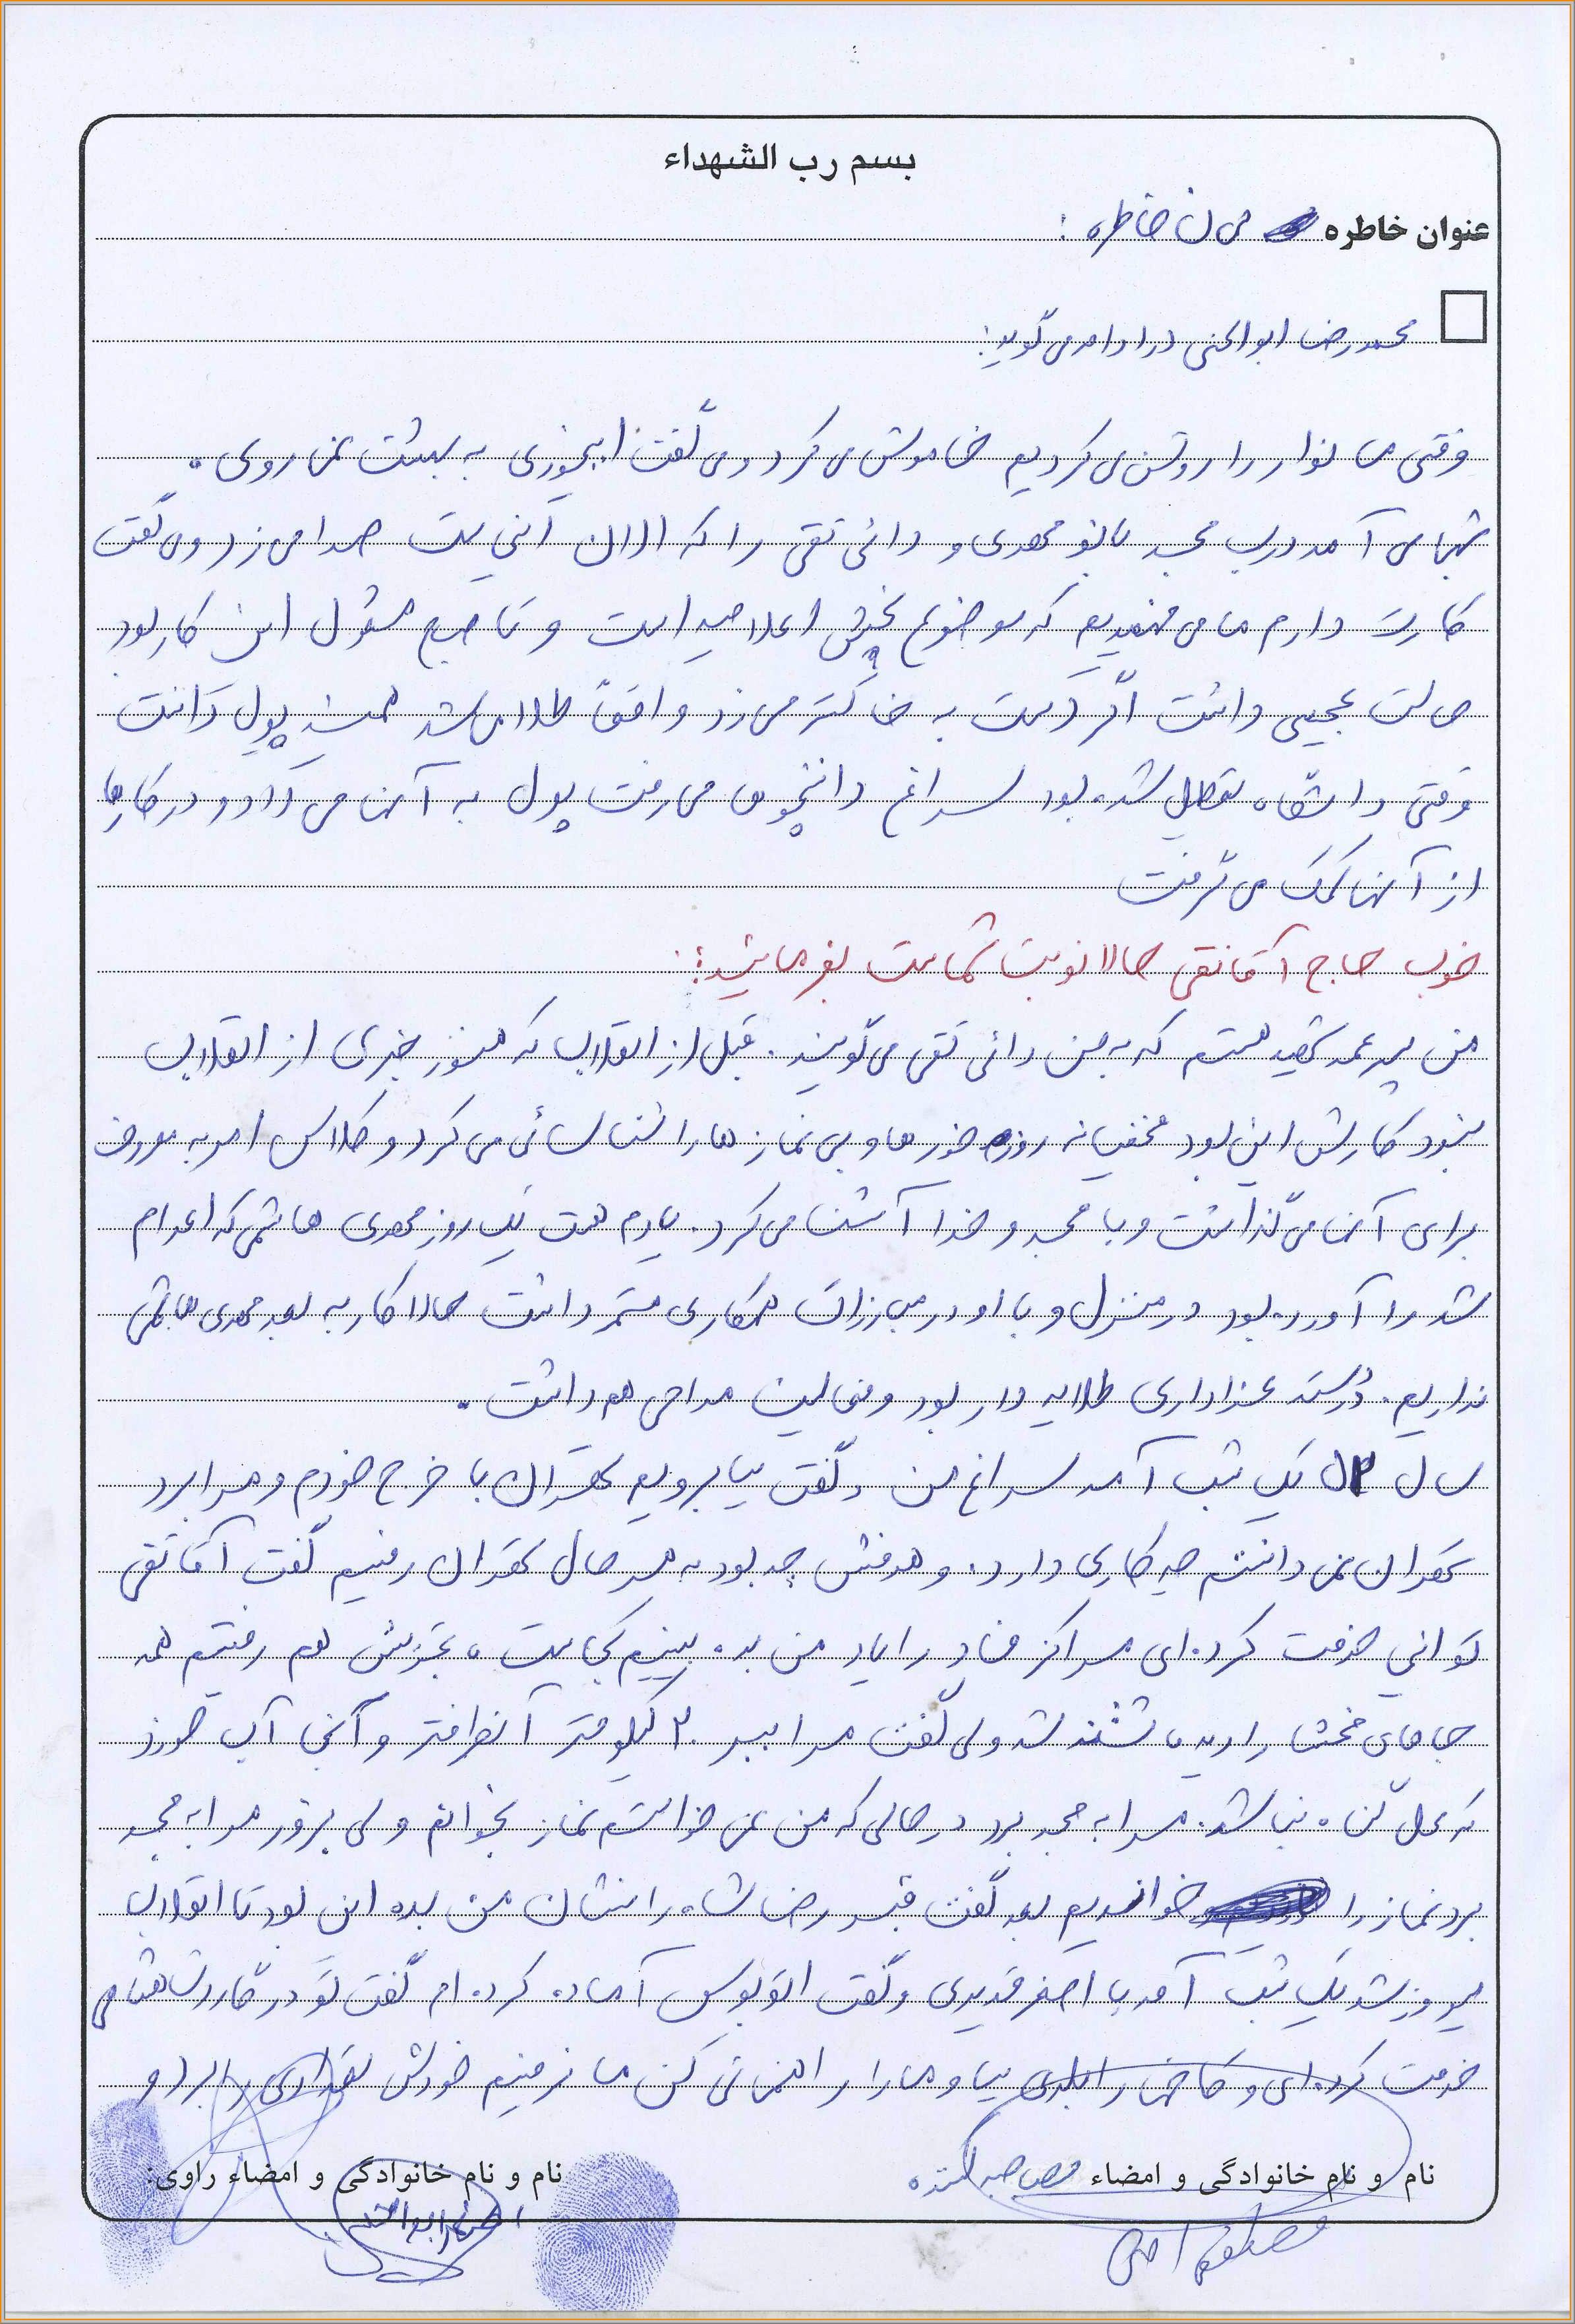 بسم رب الشهداء
عنوان خاطره متن خاطره :
محمدرضا ابوالحسنی در ادامه می گوید:
وقتی ما نوار را روشن می کردیم خاموش می کرد و می گفت به بهشت نمی روی .
شبها می آمد درب مسجد بانو مهدی و دائی تقی را که الان اینجاست صدا می زد و می گفت
کارت دارم ما می فهمیدیم که موضوع پخش اعلامیه است و تا صبح مشغول این کار بود
حالت عجیبی داشت اگر دست به خاکستر می زد واقعاً طلا می شد همیشه پول داشت
وقتی دانشگاه تعطیل شده بود سراغ دانشجوها می رفت پول به آنها می داد و در کارها
از آنها کمک می گرفت
خوب حاج آقا تقی حالا نوبت شماست بفرمائید:
من پسر عمه شهید هستم که به من دائی تقی می گویند . قبل از انقلاب که هنوز خبری از انقلاب
نبود کارش این بود مخفیانه روزه خورها و بی نماز ها را شناسائی می کرد و کلاس امر به معروف
برای آنها می گذاشت و با مسجد و خدا آشنا می کرد . یادم هست یک روز مهدی هاشمی که اعدام
شد را آورده بود در منزل و با او در مبارزات همکاری مستمر داشت حالا کار به بعد مهدی هاشمی
نداریم . در دسته عزاداری طلایه دار بود و فعالیت مداحی هم داشت .
سال یک شب آمد سراغ من و گفت بیا برویم تهران با خرج خودم و مرا برد
تهران نمی دانستم چه کاری دارد . و هدفش چه بود به هر حال تهران رفتیم گفت آقا تقی
تو اینجا خدمت کرده ای مراکز فساد را یاد من بده ببینم کجاست ، تجریش هم رفتیم همه
جاهای فحشا را دید ، تشنه شد ولی گفت مرا ببر ۲۰ کیلومتر آنطرفتر و آنجا آب خورد
که محل گناه نباشد . مرا به مسجد برد در حالی که من نمی خواستم نماز بخوانم ولی بزور مرا به مسجد
برد نماز را خواندیم بعد گفت قبر رضا شاه را نشان من بده این بود تا انقلاب
پیروز شد یک شب آمد با اصغر قدیری و گفت اتوبوس آماده کرده ام گفت تو در گارد شاهنشاهی
خدمت کرده ای و کاخها را بلدی بیا و ما را راهنمائی کن ما نرفتیم خودش تعدادی را برد و
نام و نام خانوادگی و امضاء مصاحبه کننده
نام و نام خانوادگی و امضاء راوی: